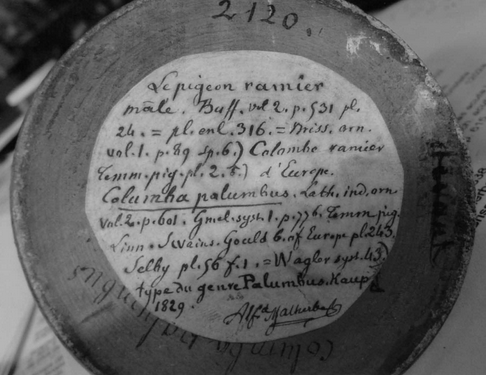 2120.
Le pigeon ramier
mâle. Buff. vol 2. p. 531 pl.
24. = pl. enl. 316. = Briss. orn.
vol. 1. p. 89 sp. 6.) Colombe ramier
Temm. pig. pl. 2. 5.) d'Europe.
Columba palumbus. Lath. ind. orn
vol. 2. p. 601. Gmel. syst. 1. p. 776. Temm pig.
Linn. Swains. Gould B. of Europe pl. 243.
Selby pl. 56 f. 1. = Wagler syst. 43.)
type du genre Palumbus. Kaup
1829. Alf.d Malherbe
Columba palumbus